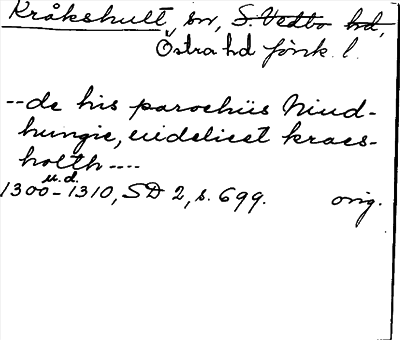 Kråkshult, sn, S. Vedbo hd,
Östra hd Jönk. l.
--de his parochiis Niud-
hungie, uidelicet kraes-
holth----
u.d.
1300-1310, SD 2, s. 699. orig.